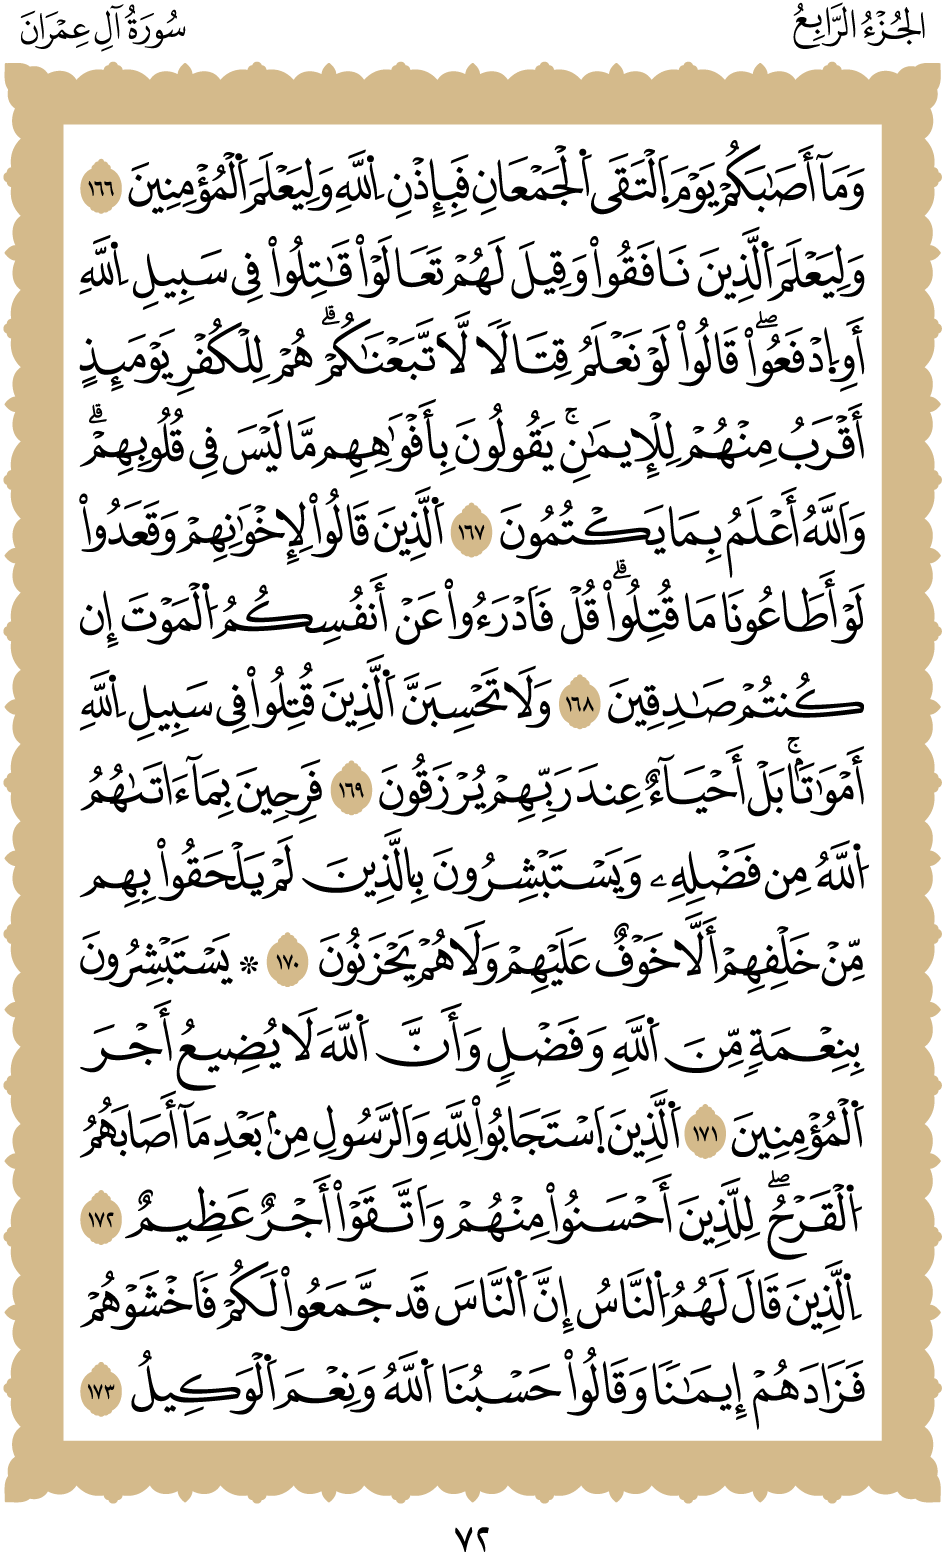 الجُزْءُ الرَّابِعُ
سُورَةُ آلِ عِمْرَانَ
وَمَآ أَصَٰبَكُمْ يَوْمَ اَ۬لْتَقَى اَ۬لْجَمْعَانِ فَبِإِذْنِ اِ۬للَّهِ وَلِيَعْلَمَ اَ۬لْمُؤْمِنِينَ ١٦٦
وَلِيَعْلَمَ اَ۬لَّذِينَ نَافَقُواْ وَقِيلَ لَهُمْ تَعَالَوْاْ قَٰتِلُواْ فِي سَبِيلِ اِ۬للَّهِ
أَوِ اِ۪دْفَعُواْۖ قَالُواْ لَوْ نَعْلَمُ قِتَالًا لَّاتَّبَعْنَٰكُمْۗ هُمْ لِلْكُفْرِ يَوْمَئِذٍ
أَقْرَبُ مِنْهُمْ لِلْإِيمَٰنِۚ يَقُولُونَ بِأَفْوَٰهِهِم مَّا لَيْسَ فِي قُلُوبِهِمْۗ
وَاَللَّهُ أَعْلَمُ بِمَا يَكْتُمُونَ ١٦٧ اَ۬لَّذِينَ قَالُواْ لِإِخْوَٰنِهِمْ وَقَعَدُواْ
لَوْ أَطَاعُونَا مَا قُتِلُواْۗ قُلْ فَادْرَءُواْ عَنْ أَنفُسِكُمُ اُ۬لْمَوْتَ إِن
كُنتُمْ صَٰدِقِينَ ١٦٨ وَلَا تَحْسِبَنَّ اَ۬لَّذِينَ قُتِلُواْ فِي سَبِيلِ اِ۬للَّهِ
أَمْوَٰتَۢاۚ بَلْ أَحْيَآءٌ عِندَ رَبِّهِمْ يُرْزَقُونَ ١٦٩ فَرِحِينَ بِمَآ ءَاتَىٰهُمُ
اُ۬للَّهُ مِن فَضْلِهِۦ وَيَسْتَبْشِرُونَ بِالَّذِينَ لَمْ يَلْحَقُواْ بِهِم
مِّنْ خَلْفِهِمْ أَلَّا خَوْفٌ عَلَيْهِمْ وَلَا هُمْ يَحْزَنُونَ ١٧٠ ۞ يَسْتَبْشِرُونَ
بِنِعْمَةٍ مِّنَ اَ۬للَّهِ وَفَضْلٍ وَأَنَّ اَ۬للَّهَ لَا يُضِيعُ أَجْرَ
اَ۬لْمُؤْمِنِينَ ١٧١ اَ۬لَّذِينَ اَ۪سْتَجَابُواْ لِلَّهِ وَالرَّسُولِ مِنۢ بَعْدِ مَآ أَصَابَهُمُ
اُ۬لْقَرْحُۖ لِلَّذِينَ أَحْسَنُواْ مِنْهُمْ وَاَتَّقَوْاْ أَجْرٌ عَظِيمٌ ١٧٢
اِ۬لَّذِينَ قَالَ لَهُمُ اُ۬لنَّاسُ إِنَّ اَ۬لنَّاسَ قَد جَّمَعُواْ لَكُمْ فَاَخْشَوْهُمْ
فَزَادَهُمْ إِيمَٰنًا وَقَالُواْ حَسْبُنَا اَ۬للَّهُ وَنِعْمَ اَ۬لْوَكِيلُ ١٧٣
٧٢